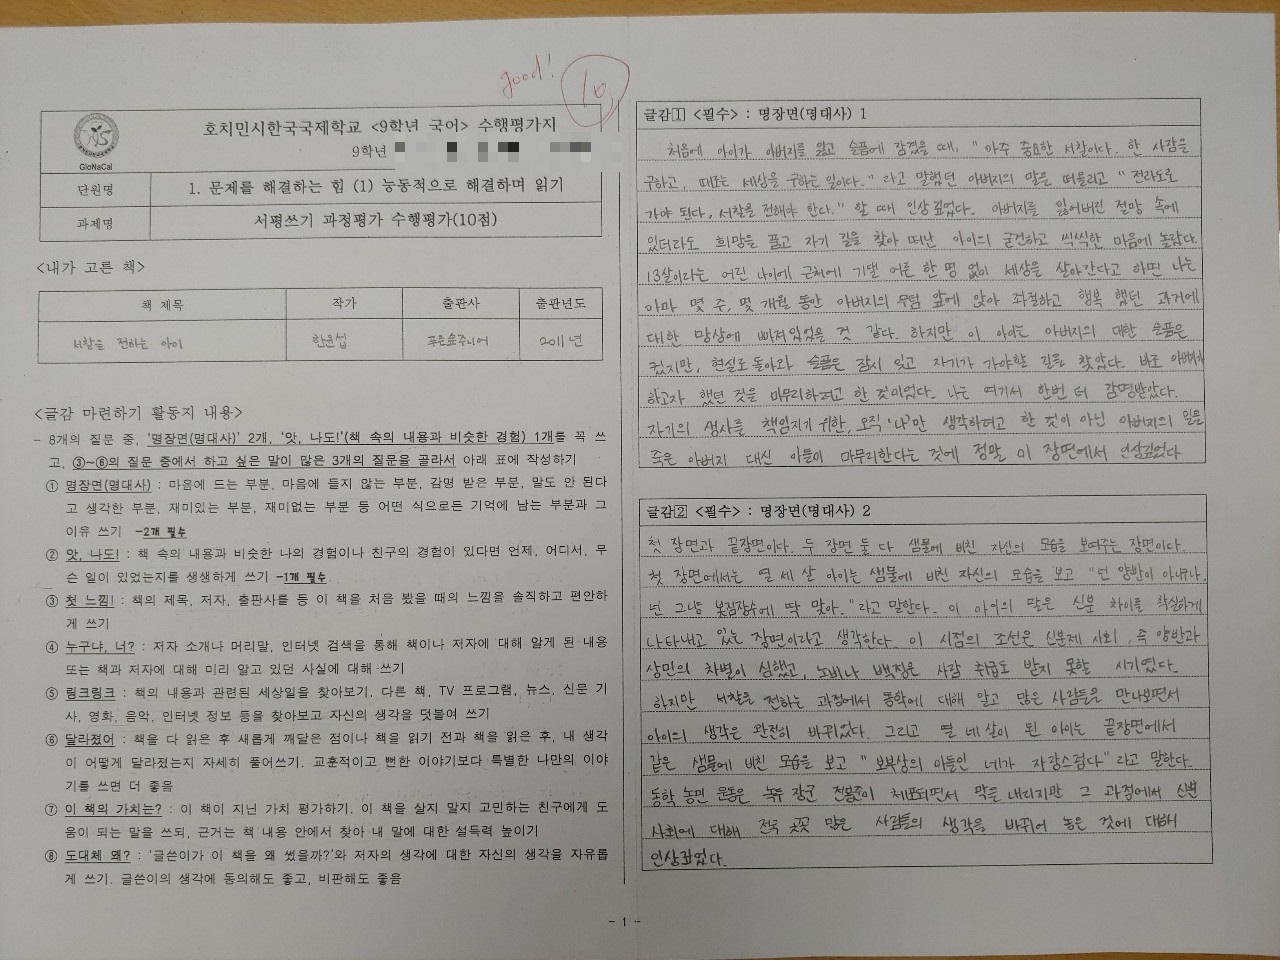 good!
10
호치민시한국국제학교 <9학년 국어> 수행평가지
9학년
GloNaCal
단원명
1. 문제를 해결하는 힘 (1) 능동적으로 해결하며 읽기
과제명
서평쓰기 과정평가 수행평가(10점)
<내가 고른 책>
책 제목 작가 출판사 출판년도
서찰을 전하는 아이 한윤섭 푸른숲주니어 2011년
<글감 마련하기 활동지 내용>
- 8개의 질문 중, '명장면(명대사)' 2개, '앗, 나도!'(책 속의 내용과 비슷한 경험) 1개를 꼭 쓰
고, ③~⑥의 질문 중에서 하고 싶은 말이 많은 3개의 질문을 골라서 아래 표에 작성하기
① 명장면(명대사) : 마음에 드는 부분, 마음에 들지 않는 부분, 감명 받은 부분, 말도 안 된다
고 생각한 부분, 재미있는 부분, 재미없는 부분 등 어떤 식으로든 기억에 남는 부분과 그
이유 쓰기 -2개 필수
② 앗, 나도! : 책 속의 내용과 비슷한 나의 경험이나 친구의 경험이 있다면 언제, 어디서, 무
슨 일이 있었는지를 생생하게 쓰기 -1개 필수
③ 첫 느낌! : 책의 제목, 저자, 출판사를 등 이 책을 처음 봤을 때의 느낌을 솔직하고 편안하
게 쓰기
④ 누구냐, 너? : 저자 소개나 머리말, 인터넷 검색을 통해 책이나 저자에 대해 알게 된 내용
또는 책과 저자에 대해 미리 알고 있던 사실에 대해 쓰기
⑤ 링크링크 : 책의 내용과 관련된 세상일을 찾아보기. 다른 책, TV 프로그램, 뉴스, 신문 기
사, 영화, 음악, 인터넷 정보 등을 찾아보고 자신의 생각을 덧붙여 쓰기
⑥ 달라졌어 : 책을 다 읽은 후 새롭게 깨달은 점이나 책을 읽기 전과 책을 읽은 후, 내 생각
이 어떻게 달라졌는지 자세히 풀어쓰기. 교훈적이고 뻔한 이야기보다 특별한 나만의 이야
기를 쓰면 더 좋음
⑦ 이 책의 가치는? : 이 책이 지닌 가치 평가하기. 이 책을 살지 말지 고민하는 친구에게 도
움이 되는 말을 쓰되, 근거는 책 내용 안에서 찾아 내 말에 대한 설득력 높이기
⑧ 도대체 왜? : '글쓴이가 이 책을 왜 썼을까?'와 저자의 생각에 대한 자신의 생각을 자유롭
게 쓰기. 글쓴이의 생각에 동의해도 좋고, 비판해도 좋음
글감1 <필수> : 명장면(명대사) 1
처음에 아이가 아버지를 잃고 슬픔에 잠겼을 때, "아주 중요한 서찰이다. 한 사람을
구하고, 때로는 세상을 구하는 일이다." 라고 말했던 아버지의 말은 떠올리고 "전라도로
가야 된다, 서찰을 전해야 한다." 할 때 인상 깊었다. 아버지를 잃어버린 절망 속에
있더라도 희망을 품고 자기 길을 찾아 떠난 아이의 굳건하고 씩씩한 마음에 놀랐다.
13살이라는 어린 나이에 근처에 기댈 어른 한 명 없이 세상을 살아간다고 하면 나는
아마 몇 주, 몇 개월 동안 아버지의 무덤 앞에 앉아 좌절하고 행복 했던 과거에
대한 망상에 빠져있었을 것 같다. 하지만 이 아이는 아버지의 대한 슬픔은
컸지만, 현실로 돌아와 슬픔은 잠시 잊고 자기가 가야할 길을 찾았다. 바로 아버지가
하고자 했던 것을 마무리하려고 한 것이었다. 나는 여기서 한번 더 감명받았다.
자기의 생사를 책임지기 위한, 오직 '나'만 생각하려고 한 것이 아닌 아버지의 일을
죽은 아버지 대신 아들이 마무리한다는 것에 정말 이 장면에서 인상깊었다
글감2 <필수> : 명장면(명대사) 2
첫 장면과 끝장면이다. 두 장면 둘 다 샘물에 비친 자신의 모습을 보여주는 장면이다.
첫 장면에서는 열 세 살 아이는 샘물에 비친 자신의 모습을 보고 "넌 양반이 아니구나,
넌 그냥 봇짐장수에 딱 맞아." 라고 말한다. 이 아이의 말은 신분 차이를 확실하게
나타내고 있는 장면이라고 생각한다. 이 시점의 조선은 신분제 사회, 즉 양반과
상민의 차별이 심했고, 노비나 백정은 사람 취급도 받지 못할 시기였다.
하지만 서찰을 전하는 과정에서 동학에 대해 알고 많은 사람들을 만나보면서
아이의 생각은 완전히 바뀌었다. 그리고 열 네 살이 된 아이는 끝장면에서
같은 샘물에 비친 모습을 보고 "보부상의 아들인 네가 자랑스럽다" 라고 말한다.
동학 농민 운동은 녹두 장군 전봉준이 체포되면서 막을 내리지만 그 과정에서 신분
사회에 대해 전국 곳곳 많은 사람들의 생각을 바뀌어 놓은 것에 대해
인상깊었다.
- 1 -